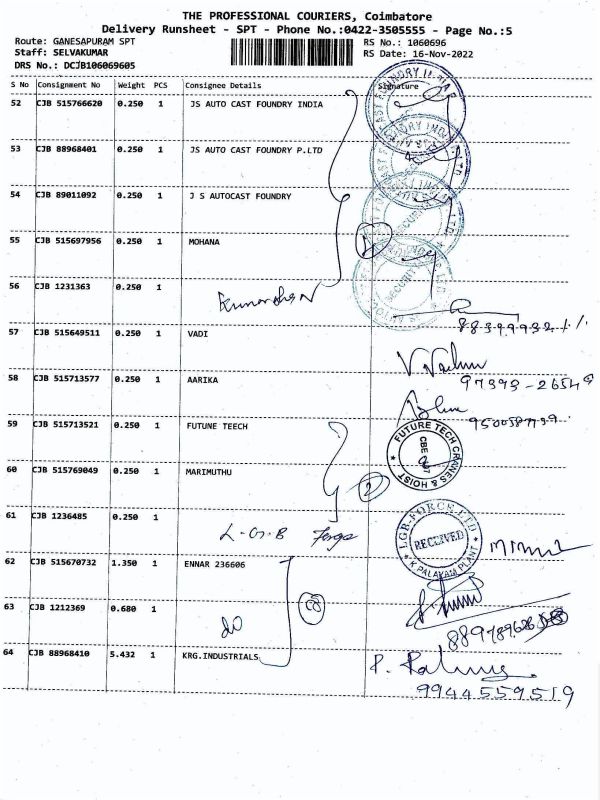 THE PROFESSIONAL COURIERS, Coimbatore
Delivery Runsheet - SPT - Phone No.:0422-3505555 - Page No.:5
Route: GANESAPURAM SPT
Staff: SELVAKUMAR
DRS No.: DCJB106069605
RS No.: 1060696
RS Date: 16-Nov-2022
S No Consignment No Weight PCS Consignee Details Signature
52 CJB 515766620 0.250 1 JS AUTO CAST FOUNDRY INDIA
53 CJB 88968401 0.250 1 JS AUTO CAST FOUNDRY P.LTD
54 CJB 89011092 0.250 1 J S AUTOCAST FOUNDRY
55 CJB 515697956 0.250 1 MOHANA
56 CJB 1231363 0.250 1
57 CJB 515649511 0.250 1 VADI
58 CJB 515713577 0.250 1 AARIKA
97393-26549
59 CJB 515713521 0.250 1 FUTUNE TEECH
FUTURE TECH CRANES & HOIST
CBE
60 CJB 515769049 0.250 1 MARIMUTHU
2
61 CJB 1236485 0.250 1
L-G-B Forge
LGB-FORGE LTD
RECEIVED
K PALAYAM PLANT
62 CJB 515670732 1.350 1 ENNAR 236606
63 CJB 1212369 0.680 1
do
64 CJB 88968410 5.432 1 KRG.INDUSTRIALS
9944559519